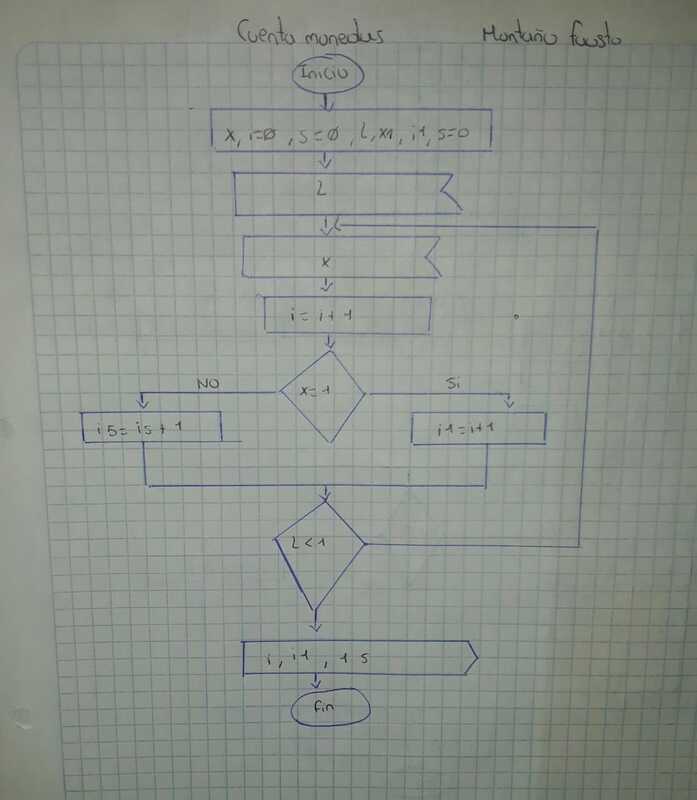 Cuenta monedas
Montaño Fausto
Inicio
x, i=0, s=0, L, x1, i1, s=0
L
x
i = i + 1
x = 1
NO
Si
i5 = i5 + 1
i1 = i + 1
L < 1
i, i1, 1 5
fin